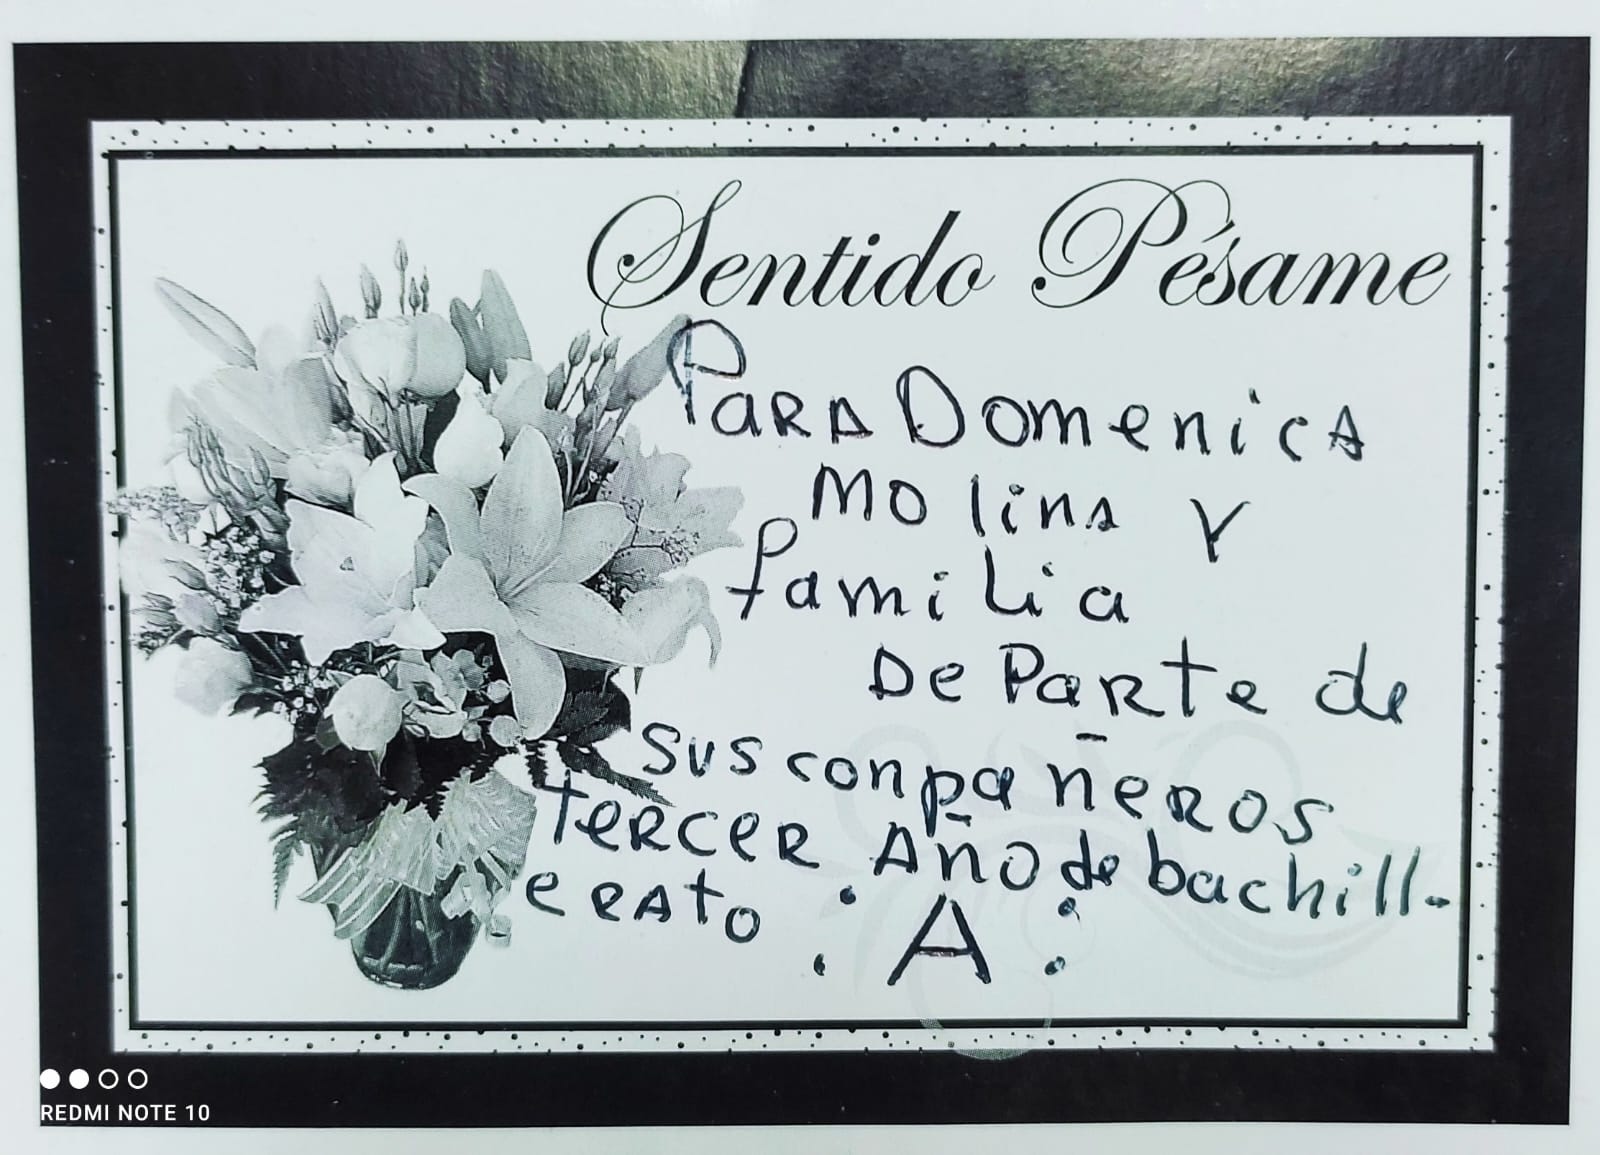 Sentido Pésame
Para Domenica
Molina y
familia
De Parte de
sus conpañeros
tercer Año de bachill-
erato :A:
REDMI NOTE 10